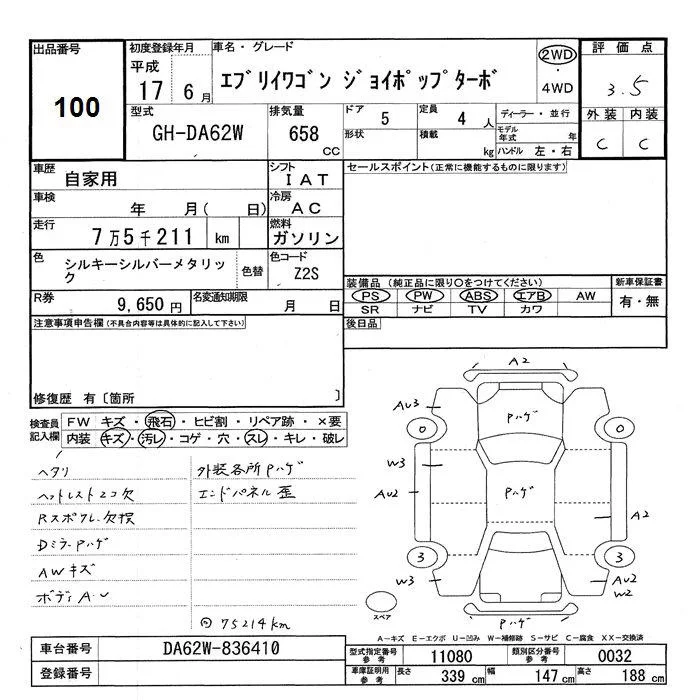 出品番号
100
初度登録年月
平成
17 6月
車名・グレード
エブリイワゴン ジョイポップターボ
2WD
・
4WD
評価点
3.5
外装 内装
C C
型式
GH-DA62W
排気量
658 CC
ドア 5
形状
定員 4 人
積載 kg
ディーラー・並行
モデル年式 年
ハンドル 左・右
車歴 自家用
シフト IAT
車検 年 月( 日)
冷房 AC
走行 7万5千211 km
燃料 ガソリン
色 シルキーシルバーメタリック
色替
色コード Z2S
R券 9,650円
名変通知期限 月 日
セールスポイント(正常に機能するものに限ります)
装備品 (純正品に限り○をつけてください)
PS PW ABS エアB AW
SR ナビ TV カワ
新車保証書
有・無
後日品
注意事項申告欄(不具合内容等は具体的に記入して下さい)
修復歴 有〔箇所 〕
検査員記入欄
FW キズ・飛石・ヒビ割・リペア跡・×要
内装 キズ・汚レ・コゲ・穴・スレ・キレ・破レ
ヘタリ
ヘットレスト2コ欠
Rスポフレ欠損
DミラーPハゲ
AWキズ
ボディA・U
外装各所Pハゲ
エンドパネル歪
75214km
A2
Pハゲ
AU3
0 0
W3
AU2
Pハゲ
A2
3 3
W3
AU2
W2
Pハゲ
スペア
A-キズ E-エクボ U-凹み W-補修跡 S-サビ C-腐食 XX-交換済
車台番号 DA62W-836410
登録番号
型式指定番号 参考 11080
類別区分番号 参考 0032
車庫証明用 参考 長さ 339 cm 幅 147 cm 高さ 188 cm